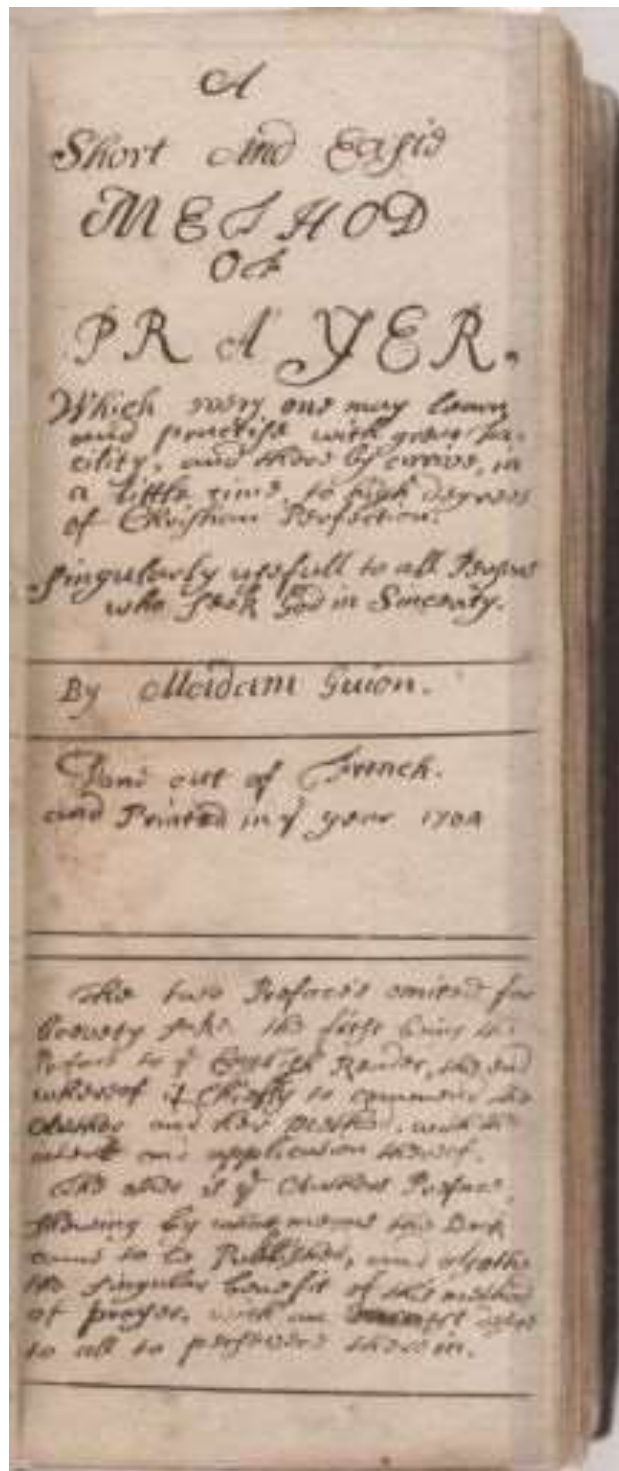 A
Short And Easie
METHOD
OF
PRAYER.
Which every one may learn
and practise with great fa-
cility, and there by arrive, in
a little time, to high degrees
of Christian Perfection.
Singularly usefull to all Persons
who seek God in Sincerity.
By Madam Guion.
out of French.
and Printed in yͤ year 1704
The two Prefaces omited for
brevety sake. the first being the
Preface to yͤ English Reader, the end
whereof is Chiefly to commend the
Author and her method, with the
intent and application thereof.
The other is yͤ Authors Preface,
shewing by what means this Book
came to be Published, and also the
the singular benefit of this method
of prayer, with an
to all to persevere therein.